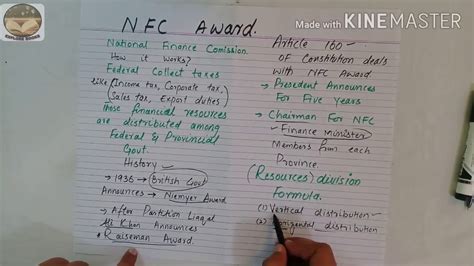 NFC Award.
Made with KINEMASTER
National Finance Comission.
How it works?
Federal Collect taxes
like (Income tax, Corporate tax,
Sales tax, Export duties)
those financial resources
are distributed among
Federal & Provincial
Govt.
History
→ 1936 → British Govt
Announces → Niemyer Award
→ After Partition Liaqat
Ali Khan Announces
Raiseman Award.
Article 160 –
OF Constitution deals
with NFC Award.
→ President Announces
For Five years
→ Chairman For NFC
Finance minister
Members from each
Province.
(Resources) division
Formula.
(1) Vertical distribution –
(2) Horizental distribution